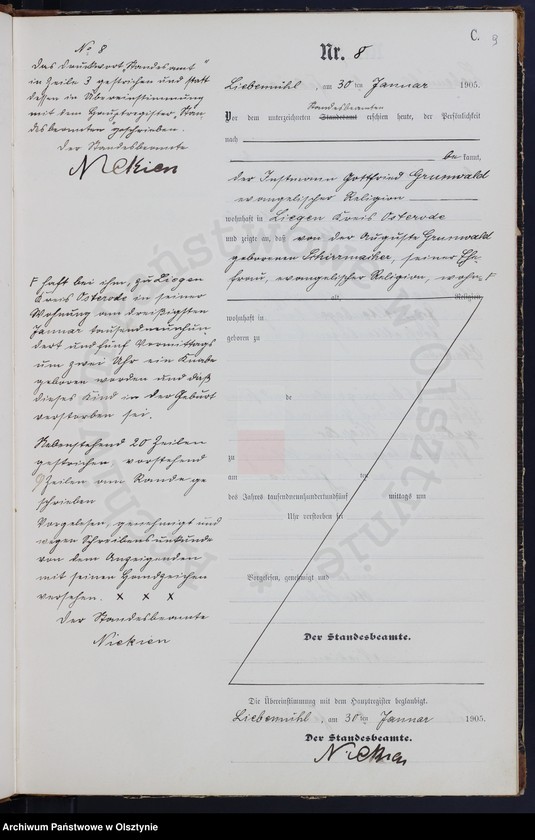 C.
9
No 8
Das Druckwort „Standesamt"
in Zeile 3 gestrichen und statt
dessen in Übereinstimmung
mit dem Hauptregister „Stan
desbeamten" geschrieben.
Der Standesbeamte
Nickien
Nr. 8
Liebemühl, am 30ten Januar 1905.
Standesbeamten
Vor dem unterzeichneten Standesamt erschien heute, der Persönlichkeit
nach
be kannt,
der Instmann Gottfried Grunwald
evangelischer Religion
wohnhaft in Liegen Kreis Osterode
und zeigte an, daß von der Auguste Grunwald
geborenen Schirrmacher, seiner Ehe
frau, evangelischer Religion, wohn F
alt, Religion,
wohnhaft in
geboren zu
de
zu
am ten
des Jahres tausendneunhundertfünf mittags um
Uhr verstorben sei
Vorgelesen, genehmigt und
Der Standesbeamte.
F haft bei ihm, zu Liegen
Kreis Osterode in seiner
Wohnung am dreißigsten
Januar tausendneunhun
dert und fünf Vormittags
um zwei Uhr ein Knabe
geboren worden und daß
dieses Kind in der Geburt
verstorben sei.
Nebenstehend 20 Zeilen
gestrichen, vorstehend
9 Zeilen am Rande ge
schrieben
Vorgelesen, genehmigt und
wegen Schreibensunkunde
von dem Anzeigenden
mit seinen Handzeichen
versehen. x x x
Der Standesbeamte
Nickien
Die Übereinstimmung mit dem Hauptregister beglaubigt.
Liebemühl, am 30ten Januar 1905.
Der Standesbeamte.
Nickien
Archiwum Państwowe w Olsztynie
Archiwum Państwowe w Olsztynie